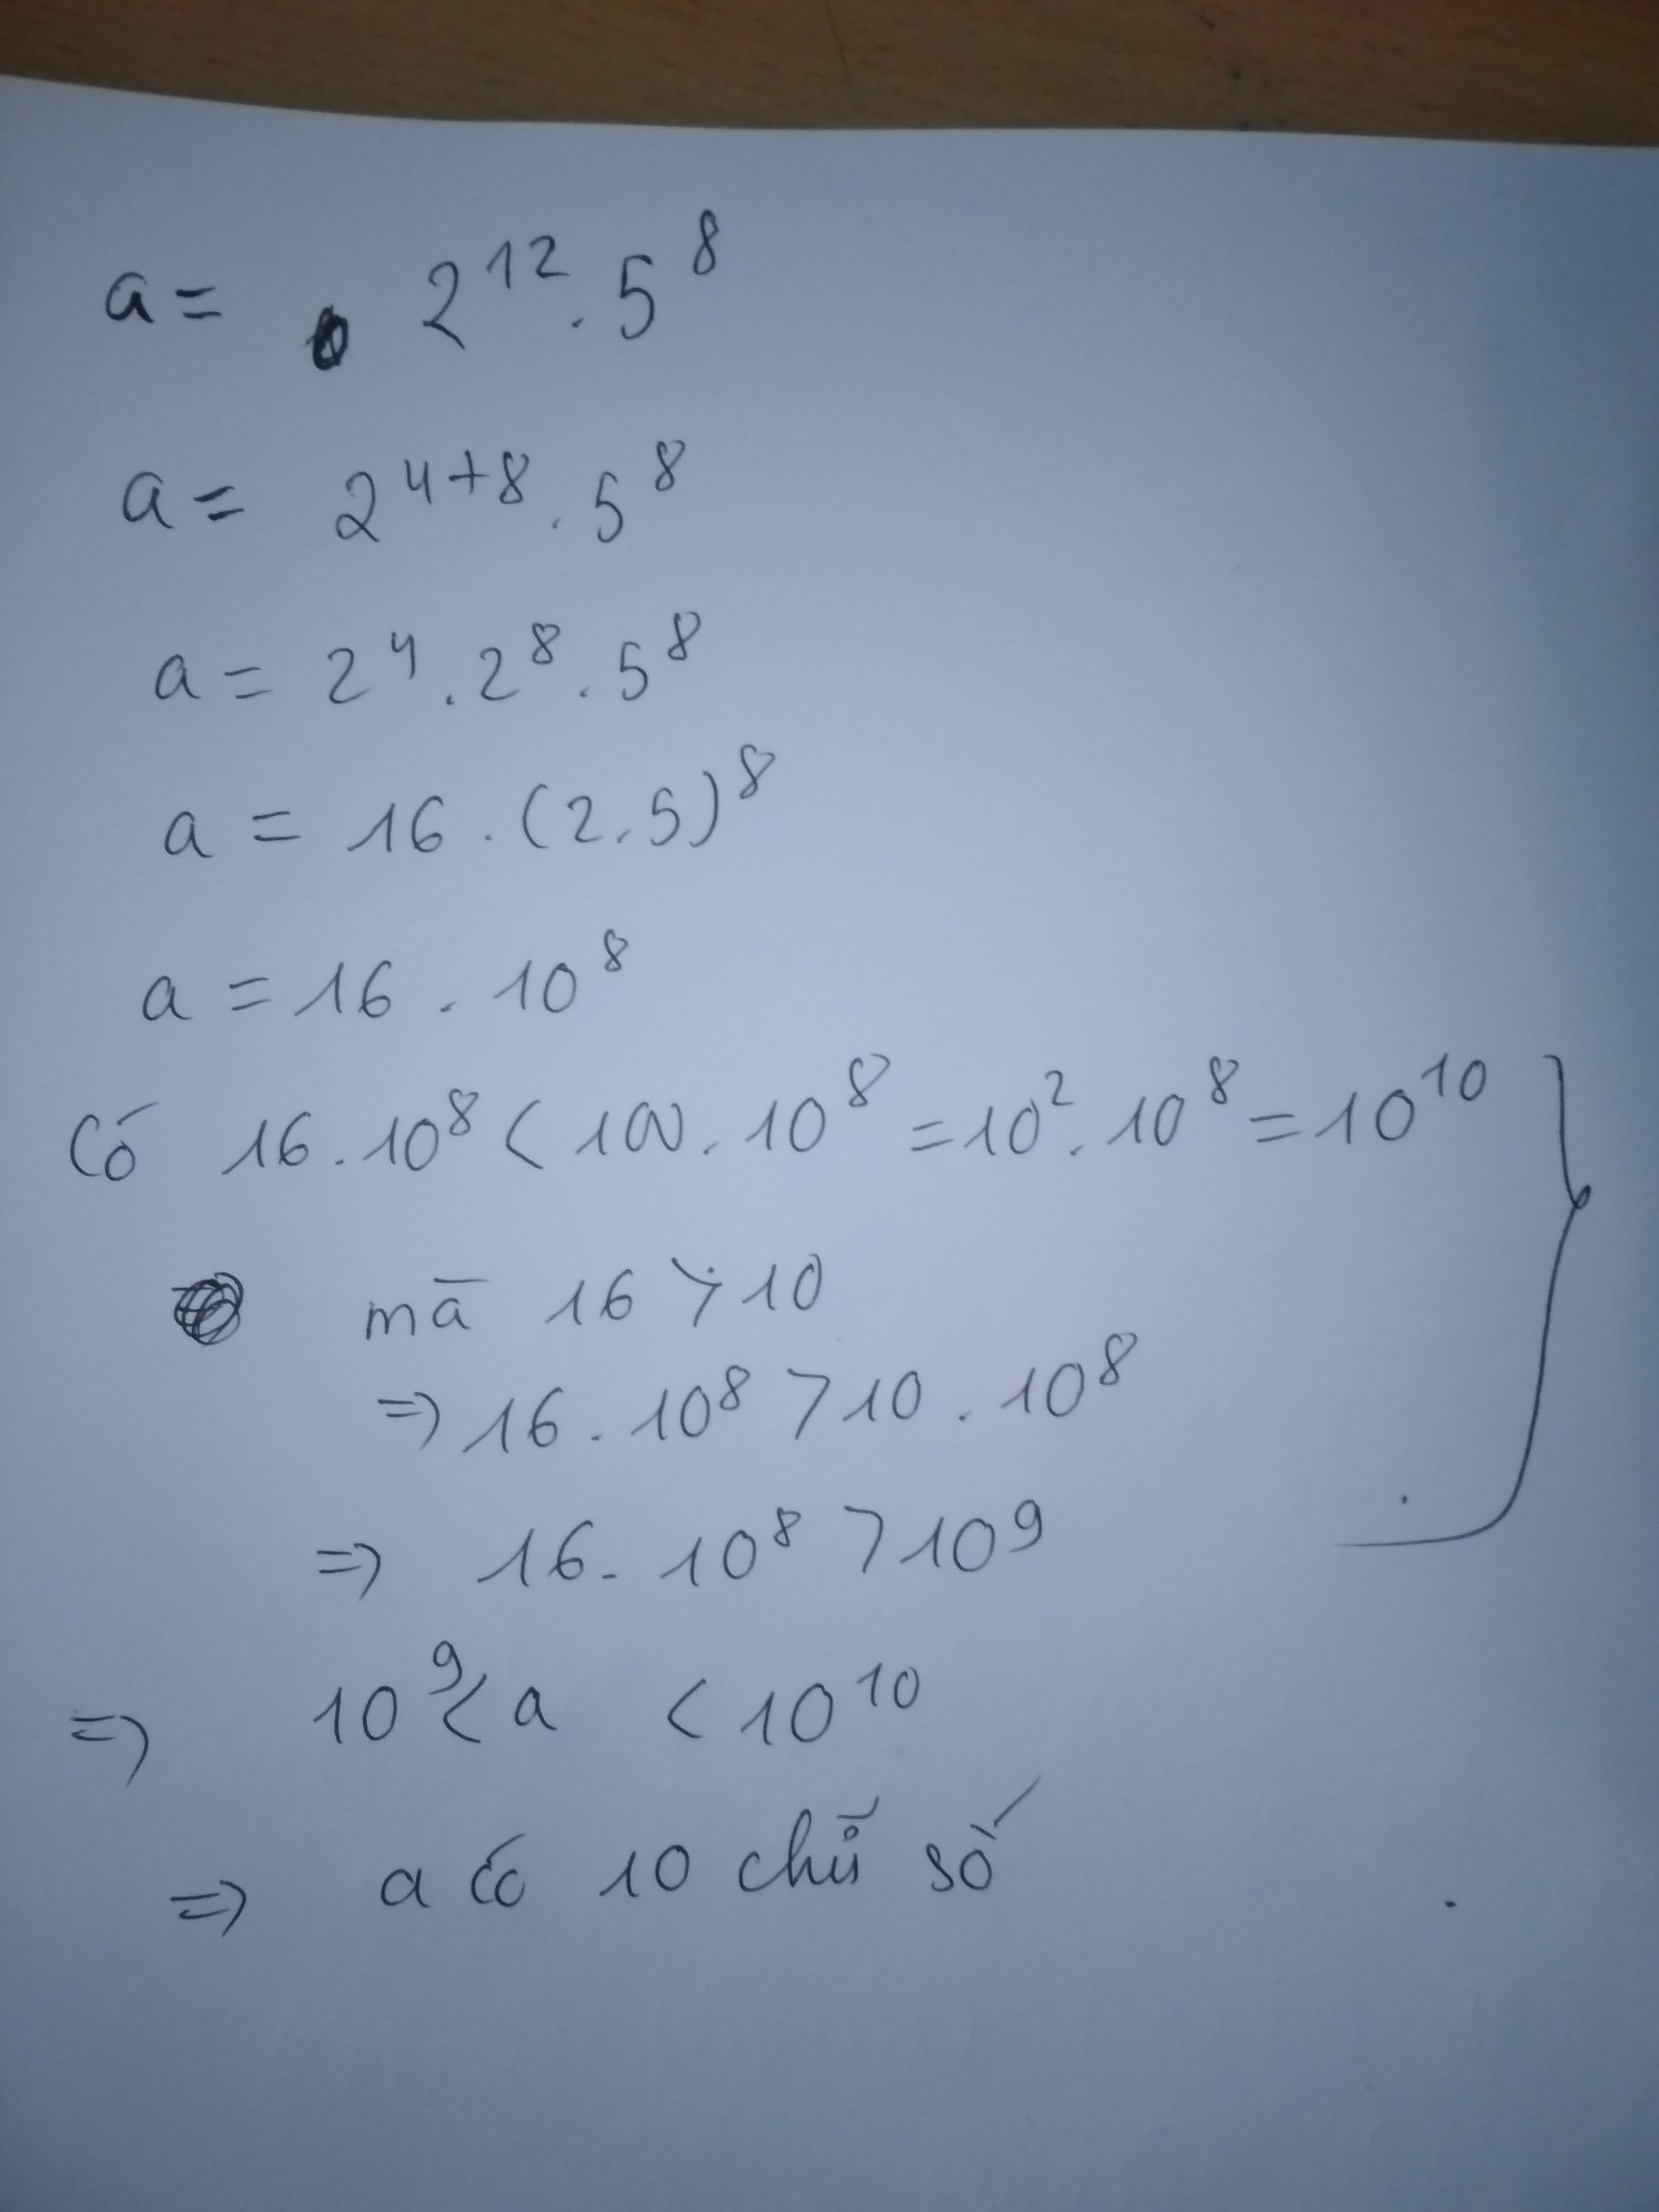 a = 2^12 . 5^8
a = 2^4+8 . 5^8
a = 2^4 . 2^8 . 5^8
a = 16 . (2.5)^8
a = 16 . 10^8
Có 16.10^8 < 100.10^8 = 10^2.10^8 = 10^10
mà 16 > 10
=> 16.10^8 > 10.10^8
=> 16.10^8 > 10^9
=> 10^9 < a < 10^10
=> a có 10 chữ số